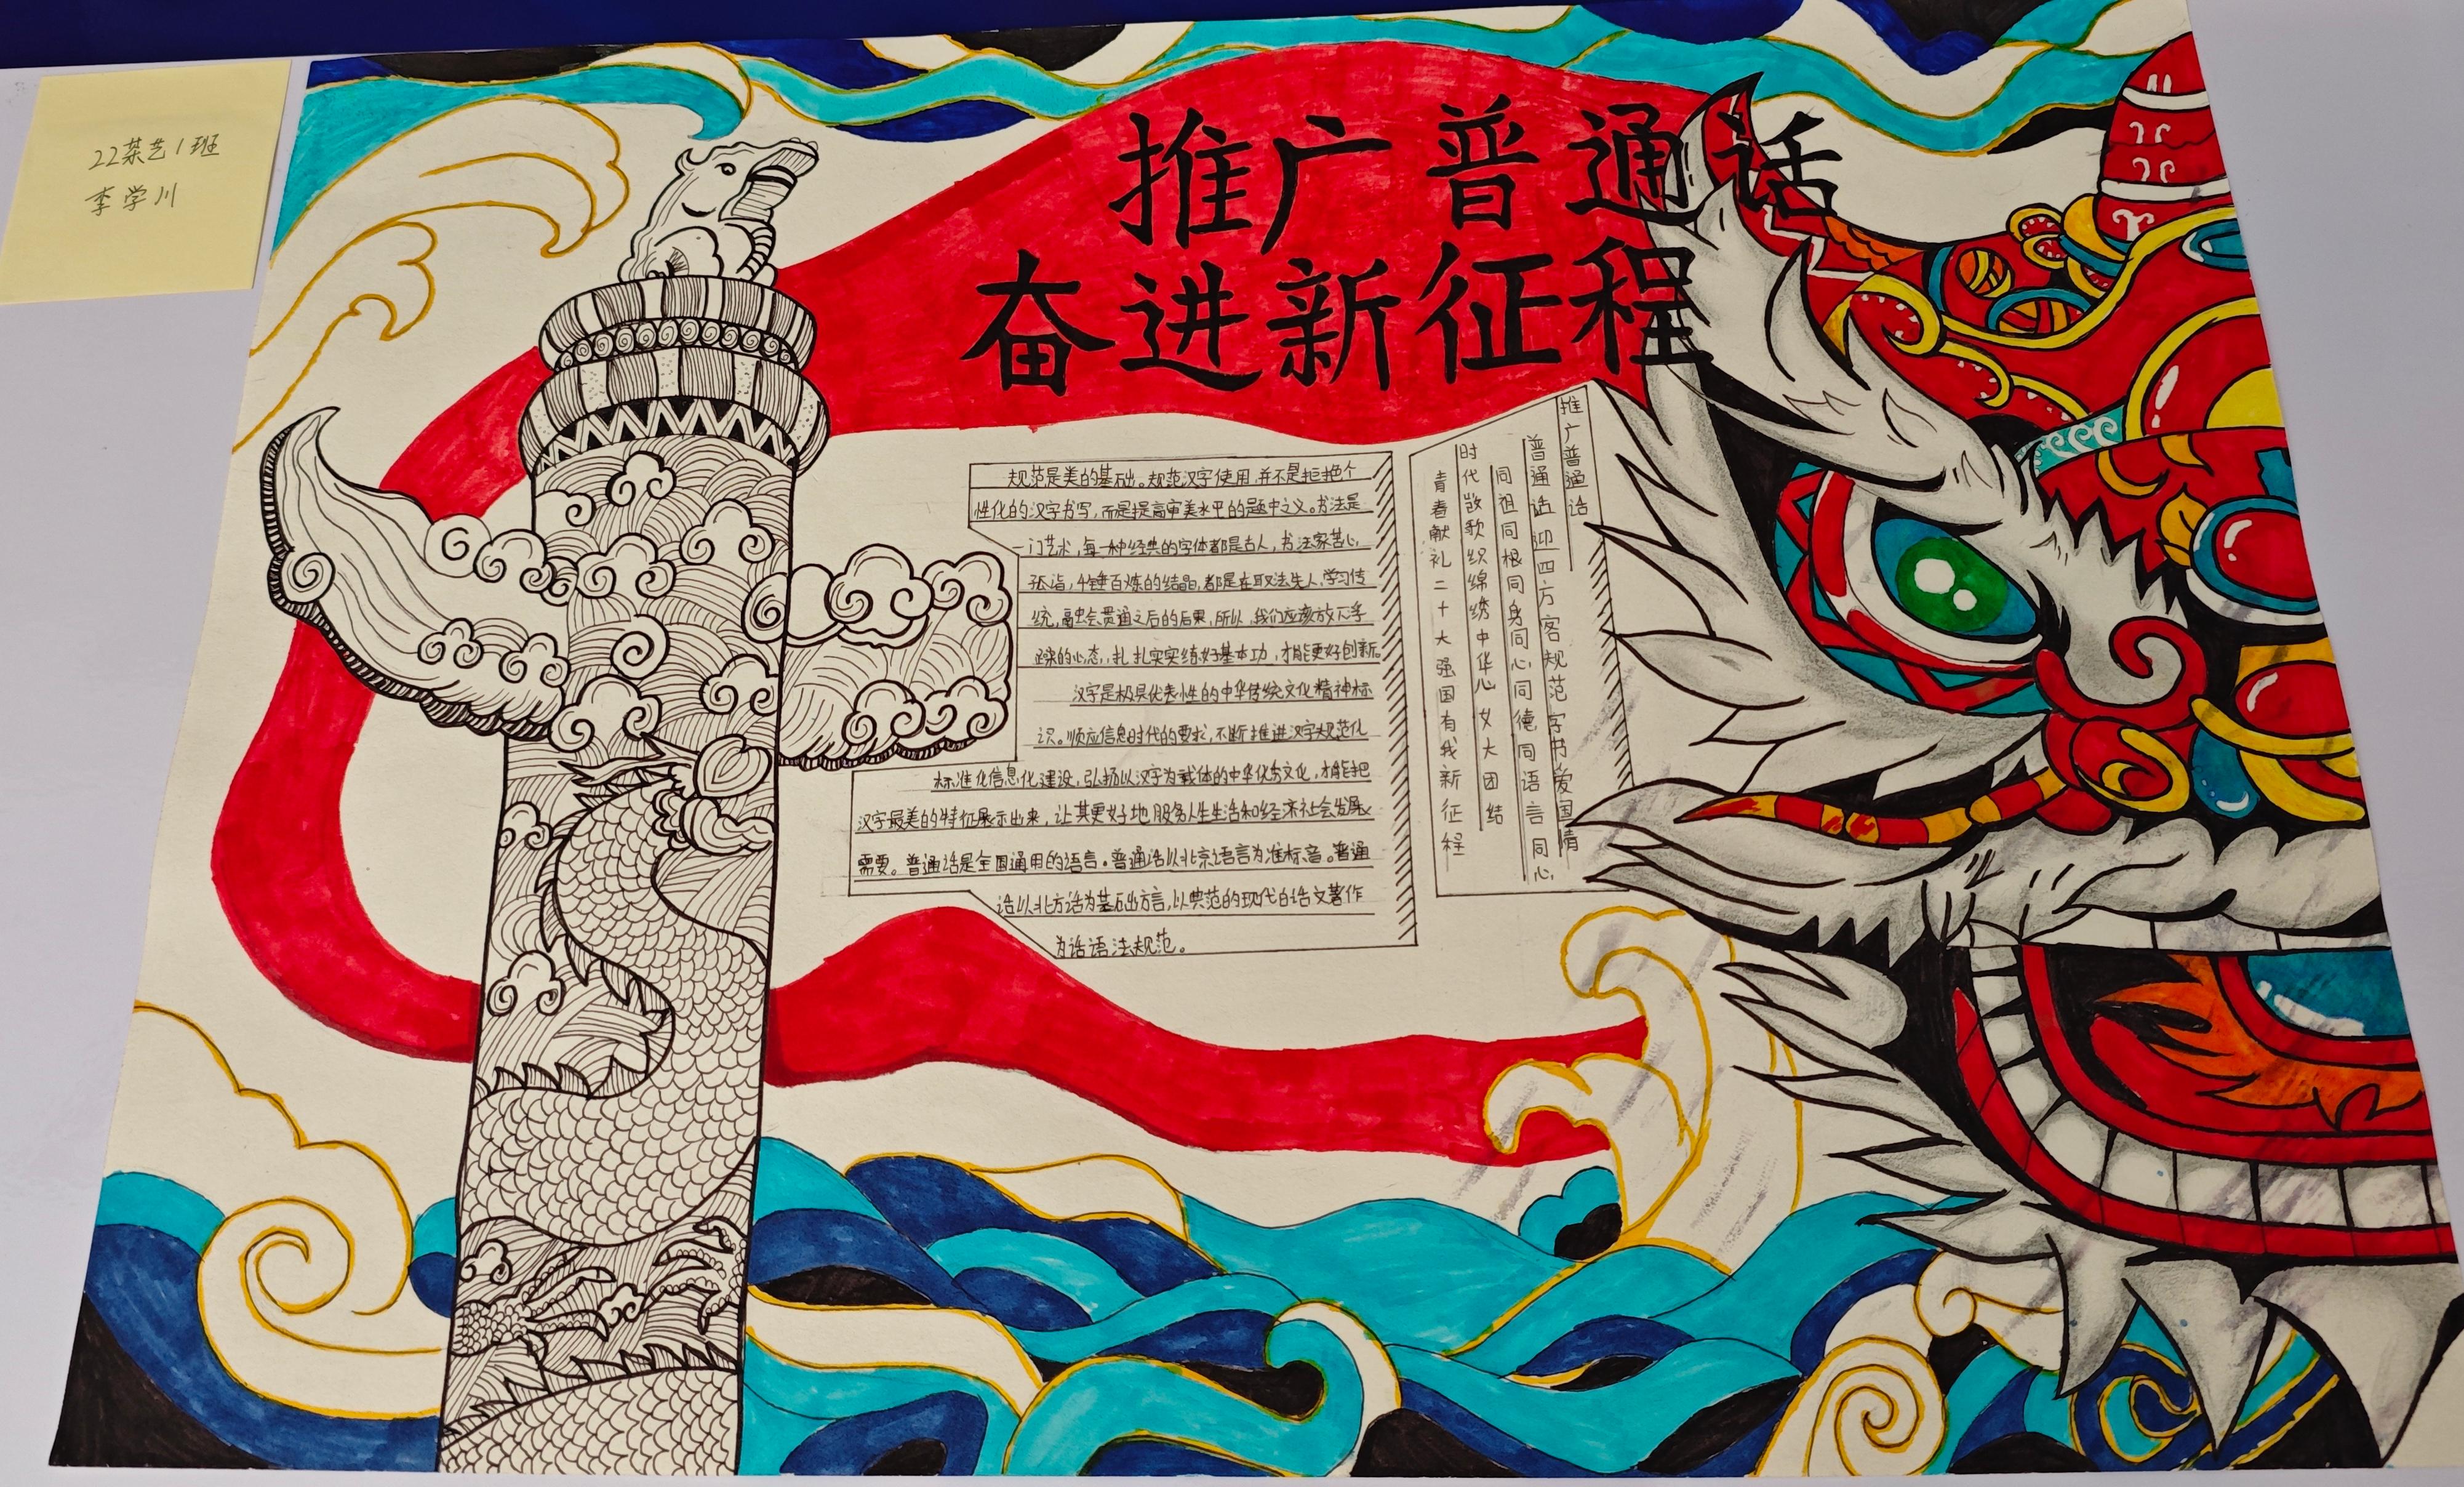 22茶艺1班
李学川
推广普通话
奋进新征程
规范是美的基础。规范汉字使用,并不是拒绝个
性化的汉字书写,而是提高审美水平的题中之义。书法是
一门艺术,每一种经典的字体都是古人,书法家苦心
孤诣,千锤百炼的结晶,都是在取法先人,学习传
统,融会贯通之后的后果,所以,我们应该放下浮
躁的心态,扎扎实实练好基本功,才能更好创新。
汉字是极具代表性的中华传统文化精神标
识。顺应信息时代的要求,不断推进汉字规范化
标准化信息化建设,弘扬以汉字为载体的中华优秀文化,才能把
汉字最美的特征展示出来,让其更好地服务人生生活和经济社会发展
需要。普通话是全国通用的语言。普通话以北京语言为准标音。普通
话以北方话为基础方言,以典范的现代白话文著作
为话语法规范。
推广普通话
普通话迎四方客规范字书爱国情
同祖同根同身同心同德同语言同心
时代敳歌织绵绣中华儿女大团结
青春献礼二十大强国有我新征程